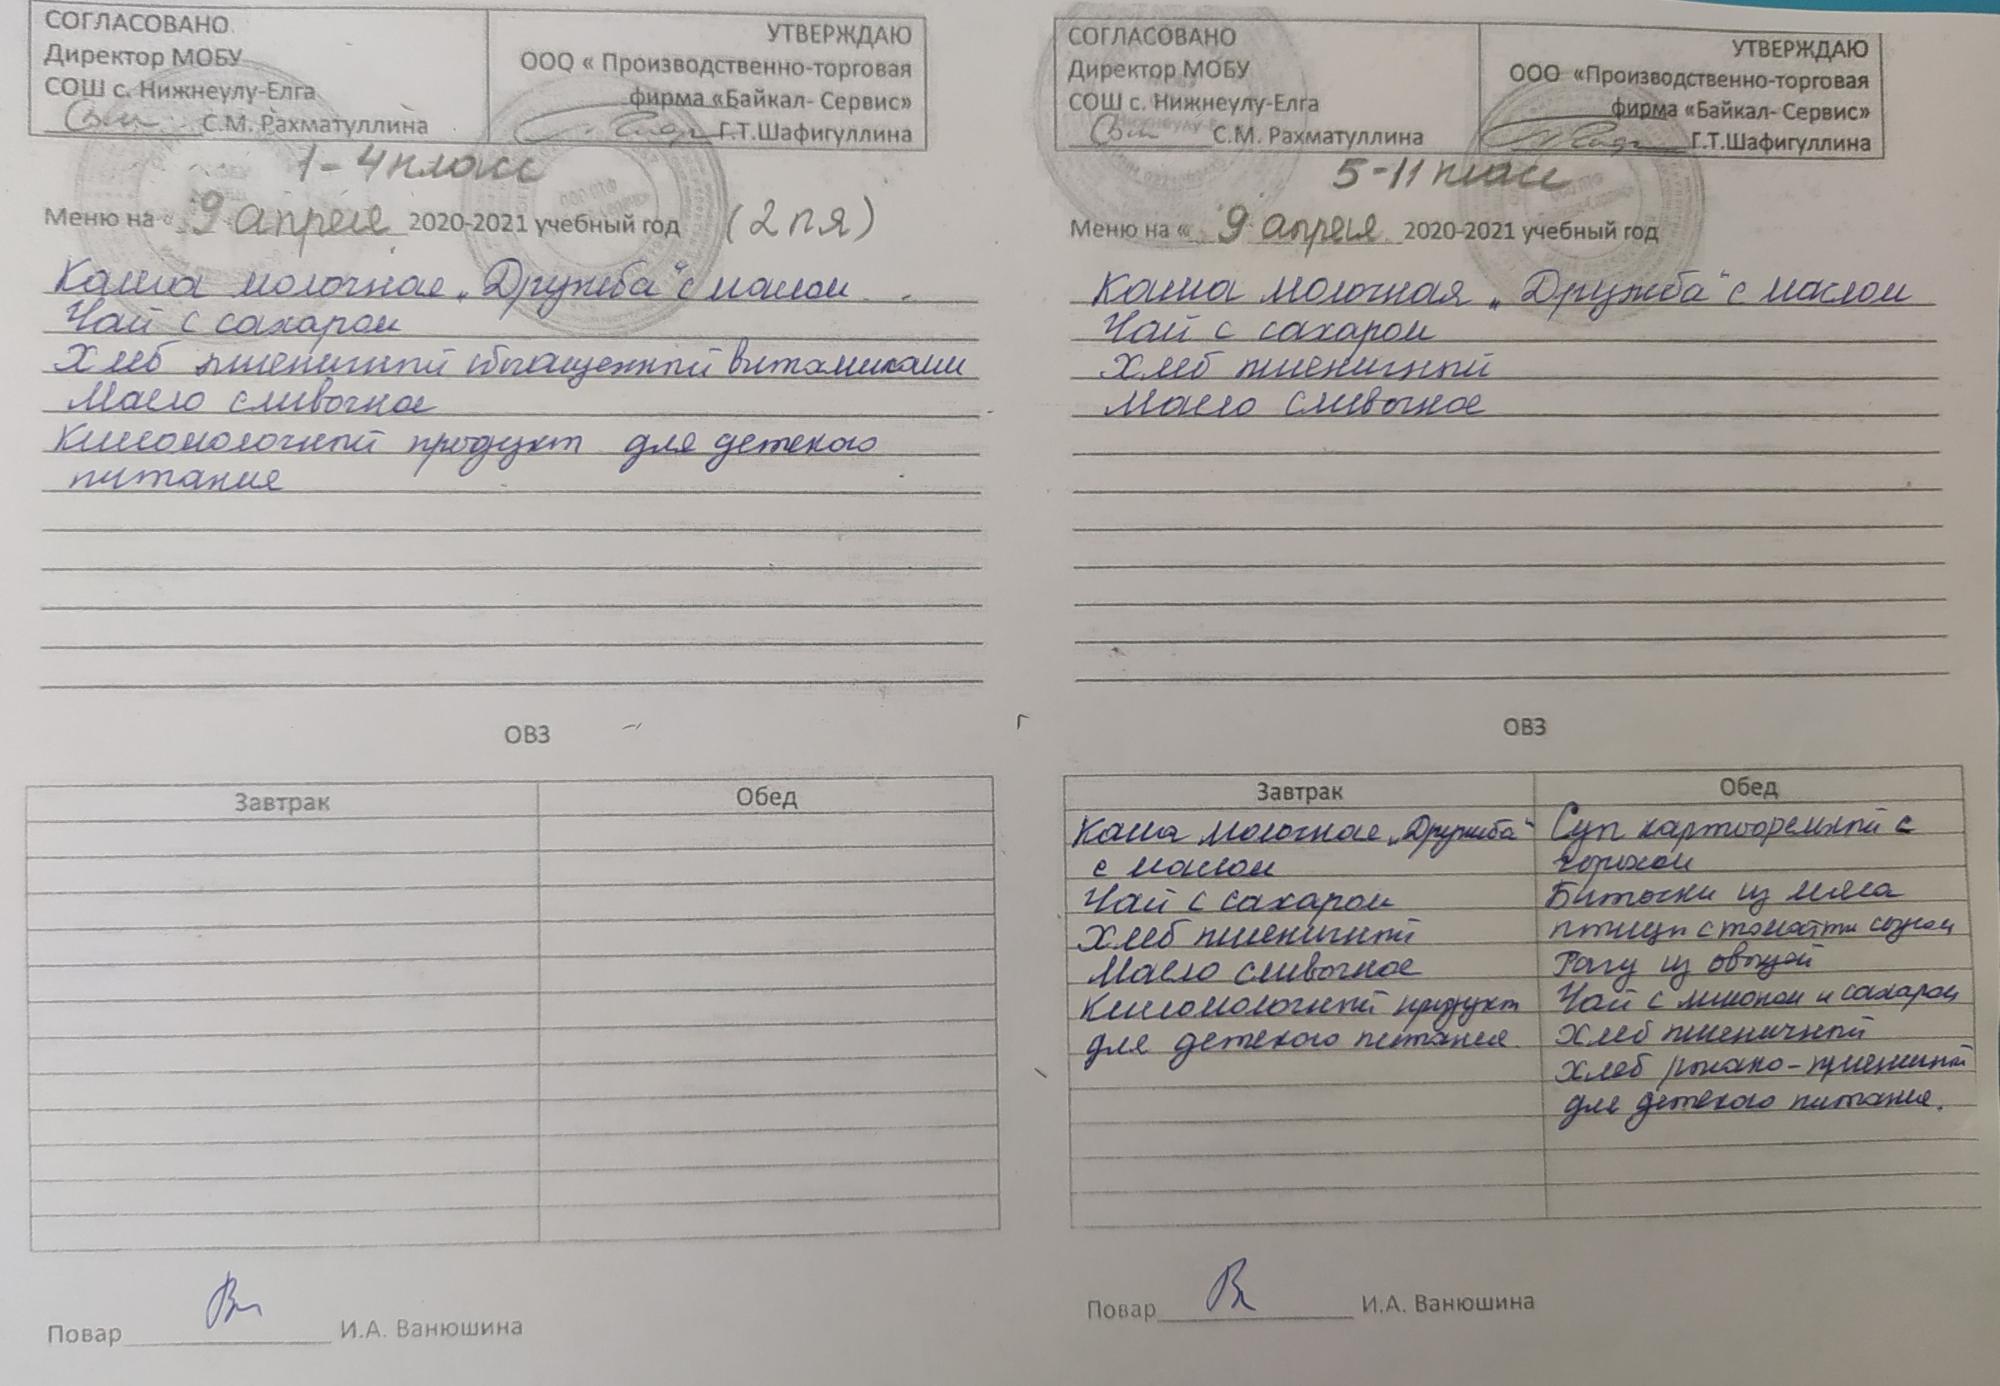 СОГЛАСОВАНО
Директор МОБУ
СОШ с. Нижнеулу-Елга
С.М. Рахматуллина
УТВЕРЖДАЮ
ООО « Производственно-торговая
фирма «Байкал- Сервис»
Г.Т.Шафигуллина
1-4 класс
Меню на « 9 апреля 2020-2021 учебный год (2 пя)
Каша молочная „Дружба“ с маслом
Чай с сахаром
Хлеб пшеничный обогащенный витаминами
Масло сливочное
Кисломолочный продукт для детского
питания
ОВЗ
Завтрак Обед
Повар И.А. Ванюшина
СОГЛАСОВАНО
Директор МОБУ
СОШ с. Нижнеулу-Елга
С.М. Рахматуллина
УТВЕРЖДАЮ
ООО «Производственно-торговая
фирма «Байкал- Сервис»
Г.Т.Шафигуллина
5-11 класс
Меню на « 9 апреля 2020-2021 учебный год
Каша молочная „Дружба“ с маслом
Чай с сахаром
Хлеб пшеничный
Масло сливочное
ОВЗ
Завтрак
Каша молочная „Дружба“
с маслом
Чай с сахаром
Хлеб пшеничный
Масло сливочное
Кисломолочный продукт
для детского питания
Обед
Суп картофельный с
горохом
Биточки из мяса
птицы с томатн соусом
Рагу из овощей
Чай с лимоном и сахаром
Хлеб пшеничный
Хлеб ржано-пшеничный
для детского питания.
Повар И.А. Ванюшина